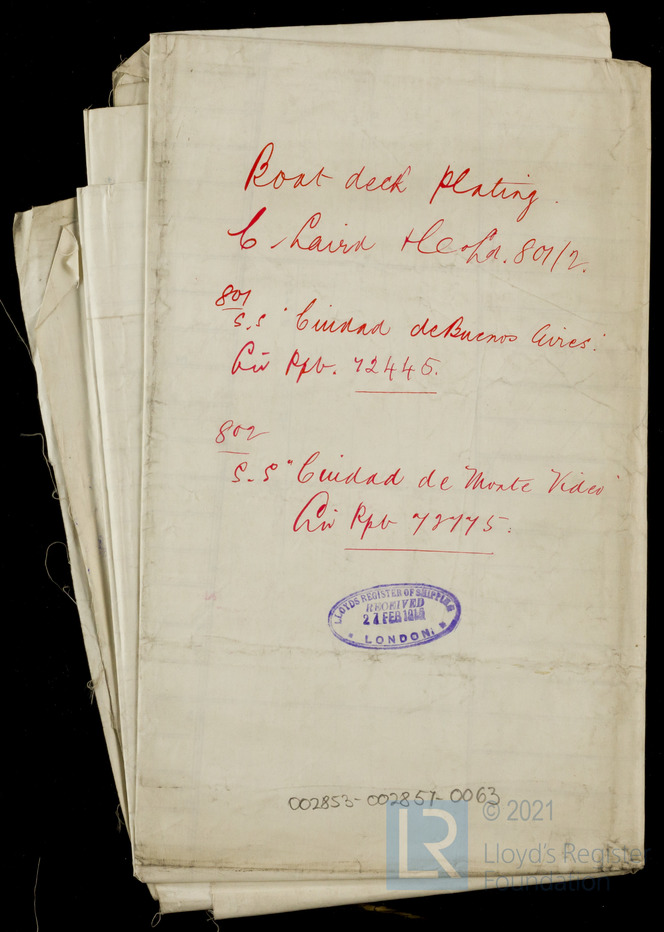 Boat deck plating.
C Laird & Co Ld. 801/2.
801
S.S "Ciudad de Buenos Aires"
Liv Rpt. 72445.
802
S.S "Ciudad de Monte Video"
Liv Rpt 72775.
LLOYDS REGISTER OF SHIPPING
RECEIVED
27 FEB
LONDON
002853-002857-0063
LR
© 2021
Lloyd's Register
Foundation